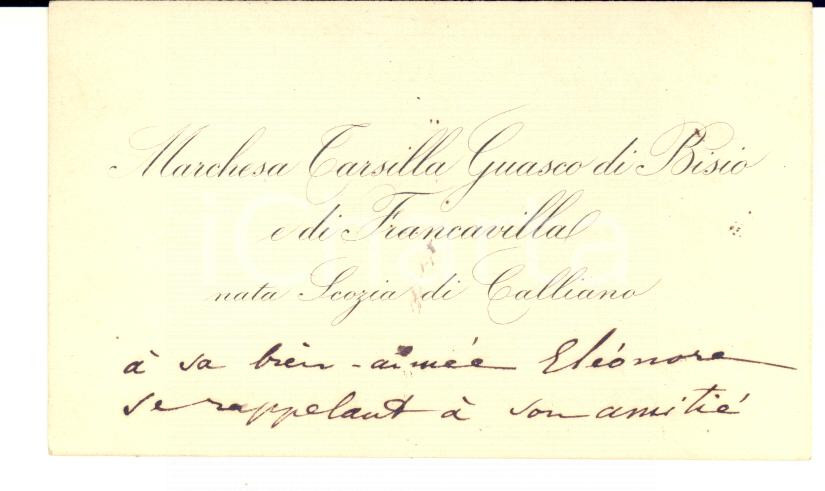 Marchesa Tarsilla Guasco di Bisio
e di Francavilla
nata Scozia di Calliano
à sa bien-aimée Eléonore
se rappelant à son amitié